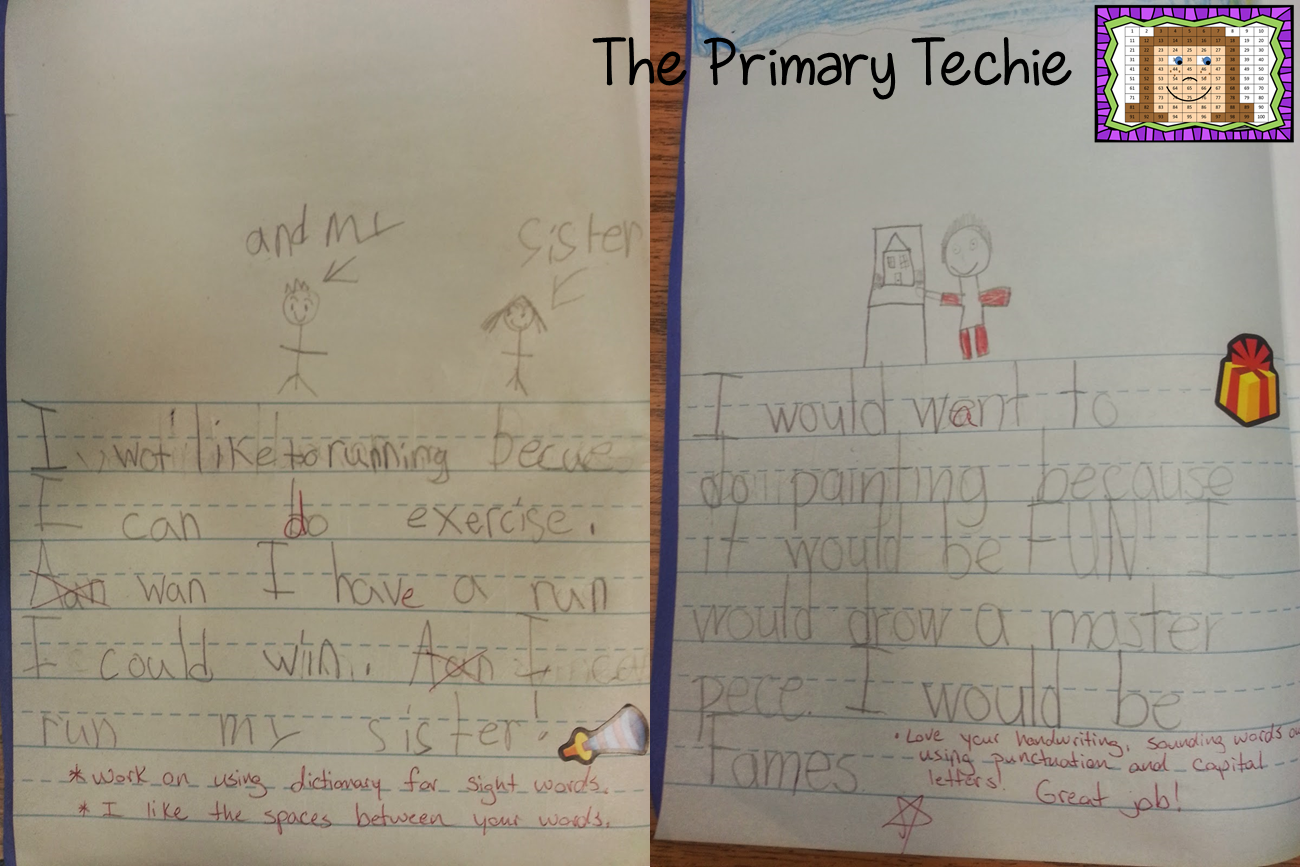 The Primary Techie
and My
sister
I wot like to running becue
I can do exercise.
Aan wan I have a run
I could win. Aan I
run my sister!
* Work on using dictionary for sight words.
* I like the spaces between your words.
I would want to
do painting because
it would be FUN! I
would drow a master
pece. I would be
Fames
• Love your handwriting, sounding words
using punctuation and capital
letters!
Great job!